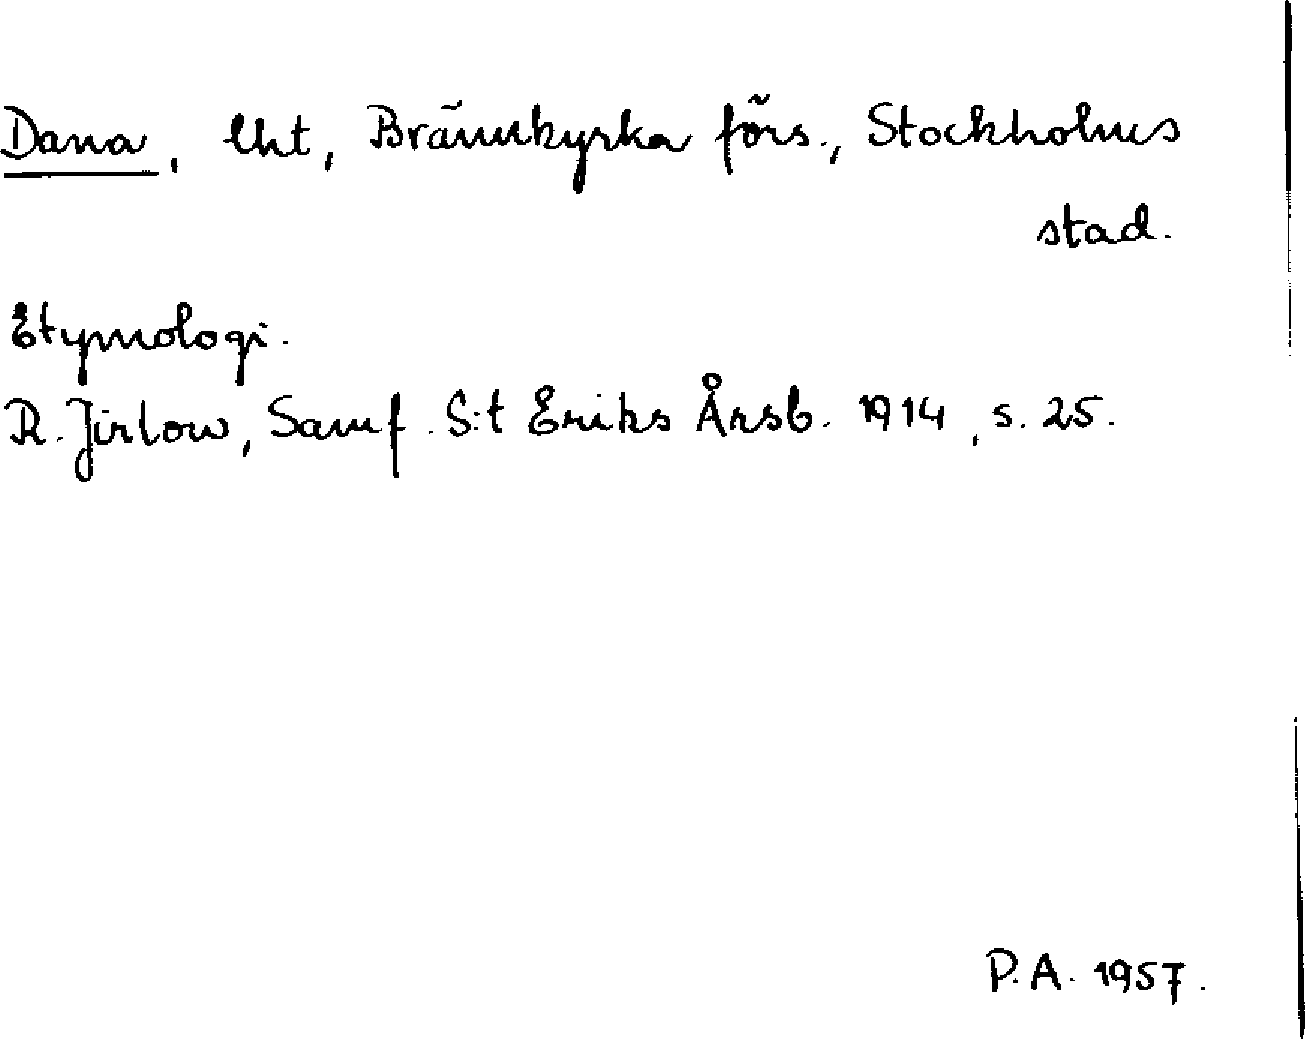 Dana, lht, Brännkyrka förs., Stockholms
stad.
Etymologi.
R. Jirlow, Samf. S:t Eriks Årsb. 1914, s. 25.
P.A. 1957.